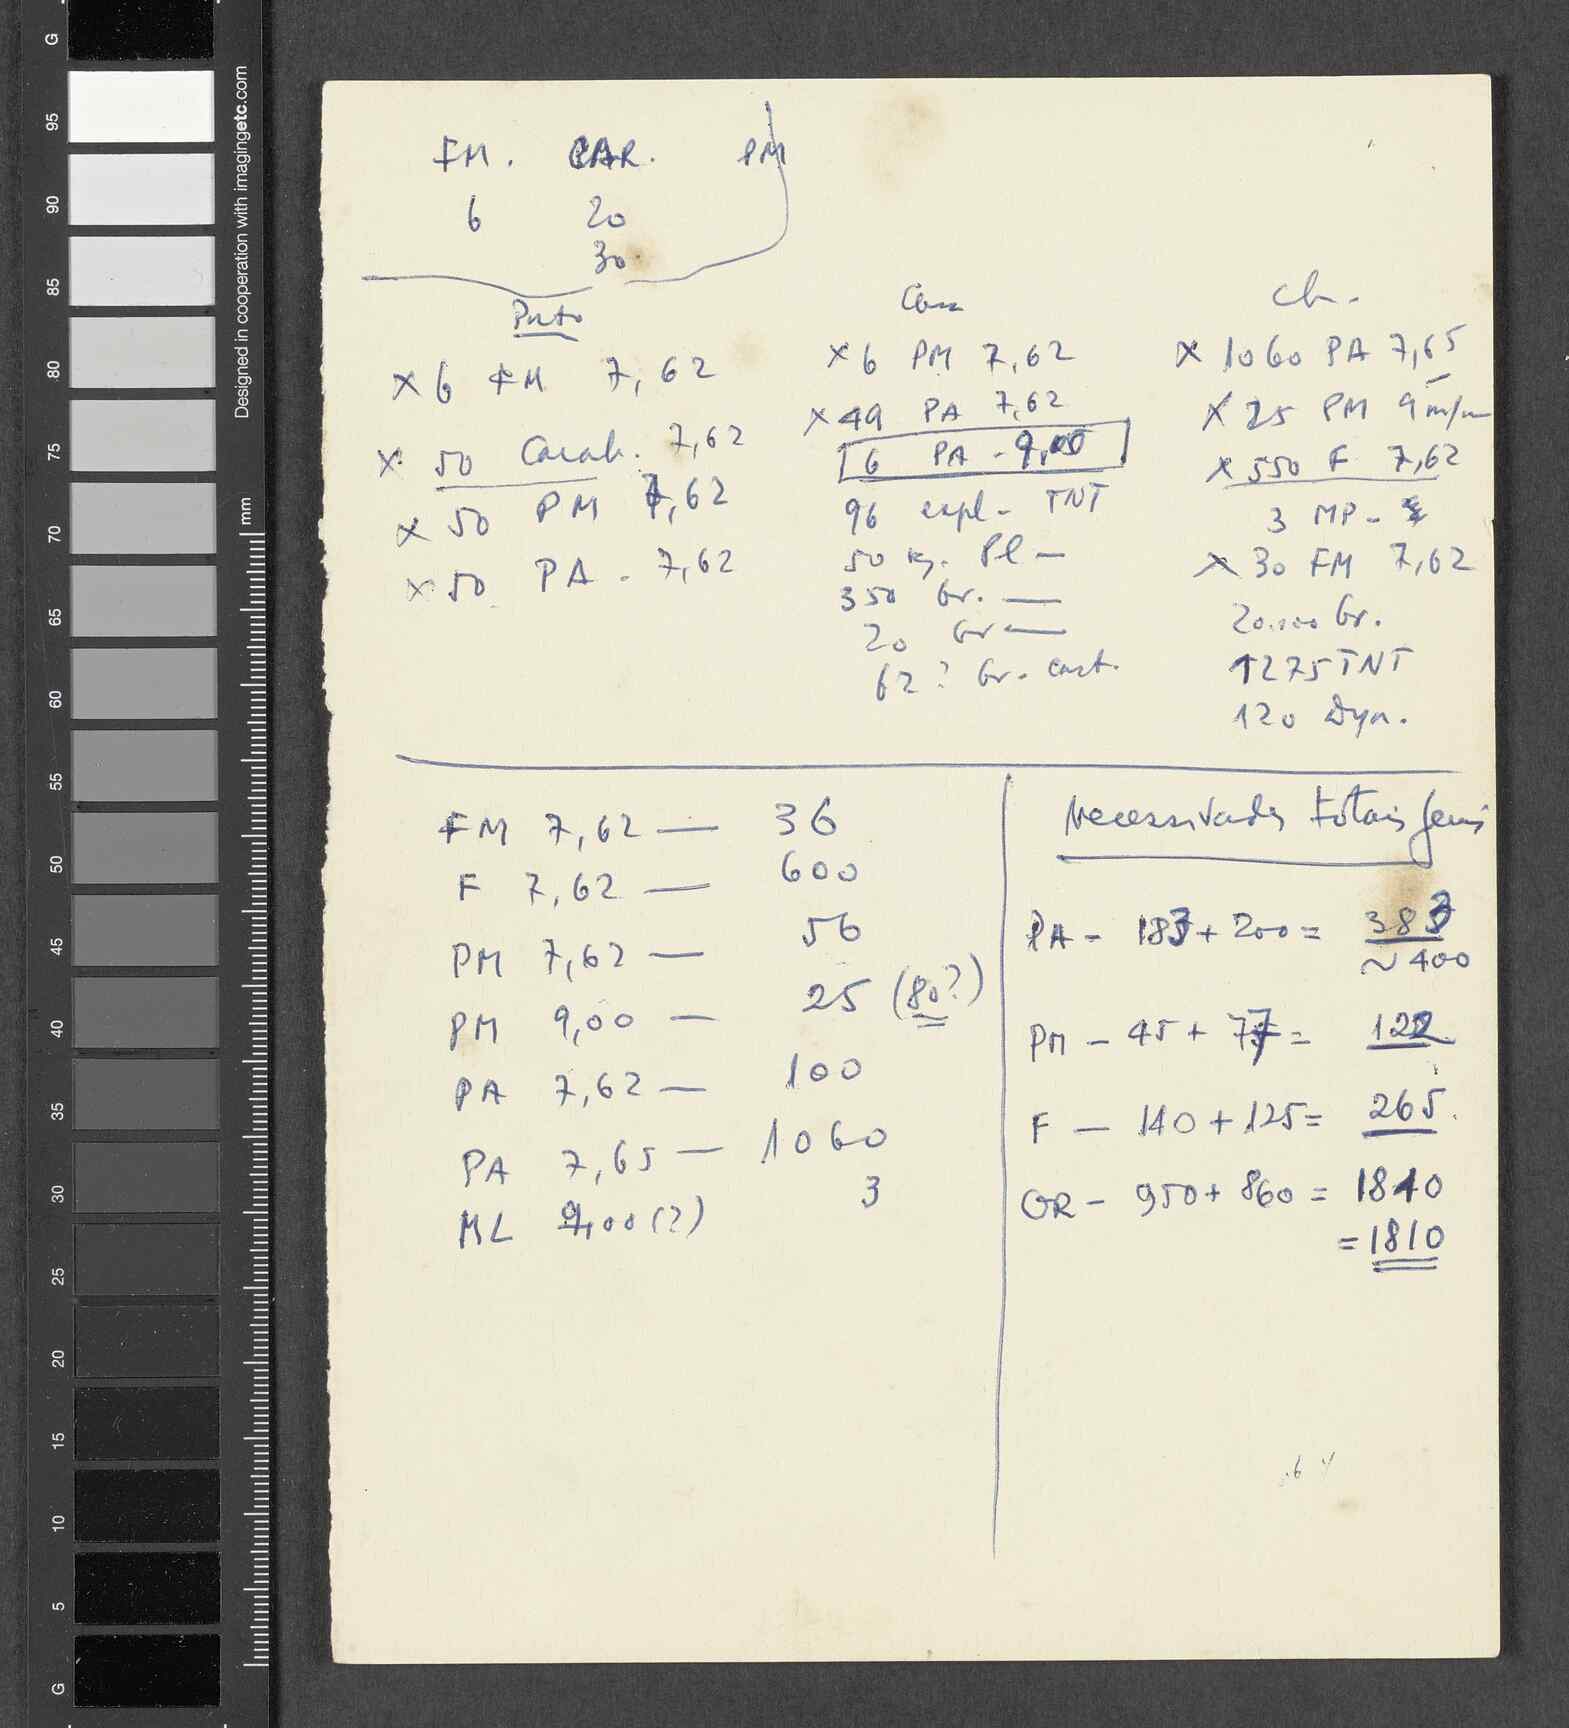 FM. CAR. PM
6 20
30
Porto
x 6 FM 7,62
x 50 Carab. 7,62
x 50 PM 7,62
x 50 PA - 7,62
Con
x 6 PM 7,62
x 49 PA 7,62
6 PA -
96 expl - TNT
50 kg. Pl —
350 Gr. —
20 Gr —
62? Gr. cast.
Ch.
x 1060 PA 7,65
x 25 PM 9 m/m
x 550 F 7,62
3 MP -
x 30 FM 7,62
20.000 Gr.
1275 TNT
120 Dyn.
FM 7,62 — 36
F 7,62 — 600
PM 7,62 — 56
PM 9,00 — 25 (80?)
PA 7,62 — 100
PA 7,65 — 1060
ML 9,00 (?) 3
Necessidades totais
PA - 183 + 200 = 383
~ 400
PM - 45 + 77 = 122
F — 140 + 125 = 265
GR - 950 + 860 = 1840
= 1810
Designed in cooperation with imagingetc.com
mm
G
95
90
85
80
75
70
65
60
55
50
45
40
35
30
25
20
15
10
5
G